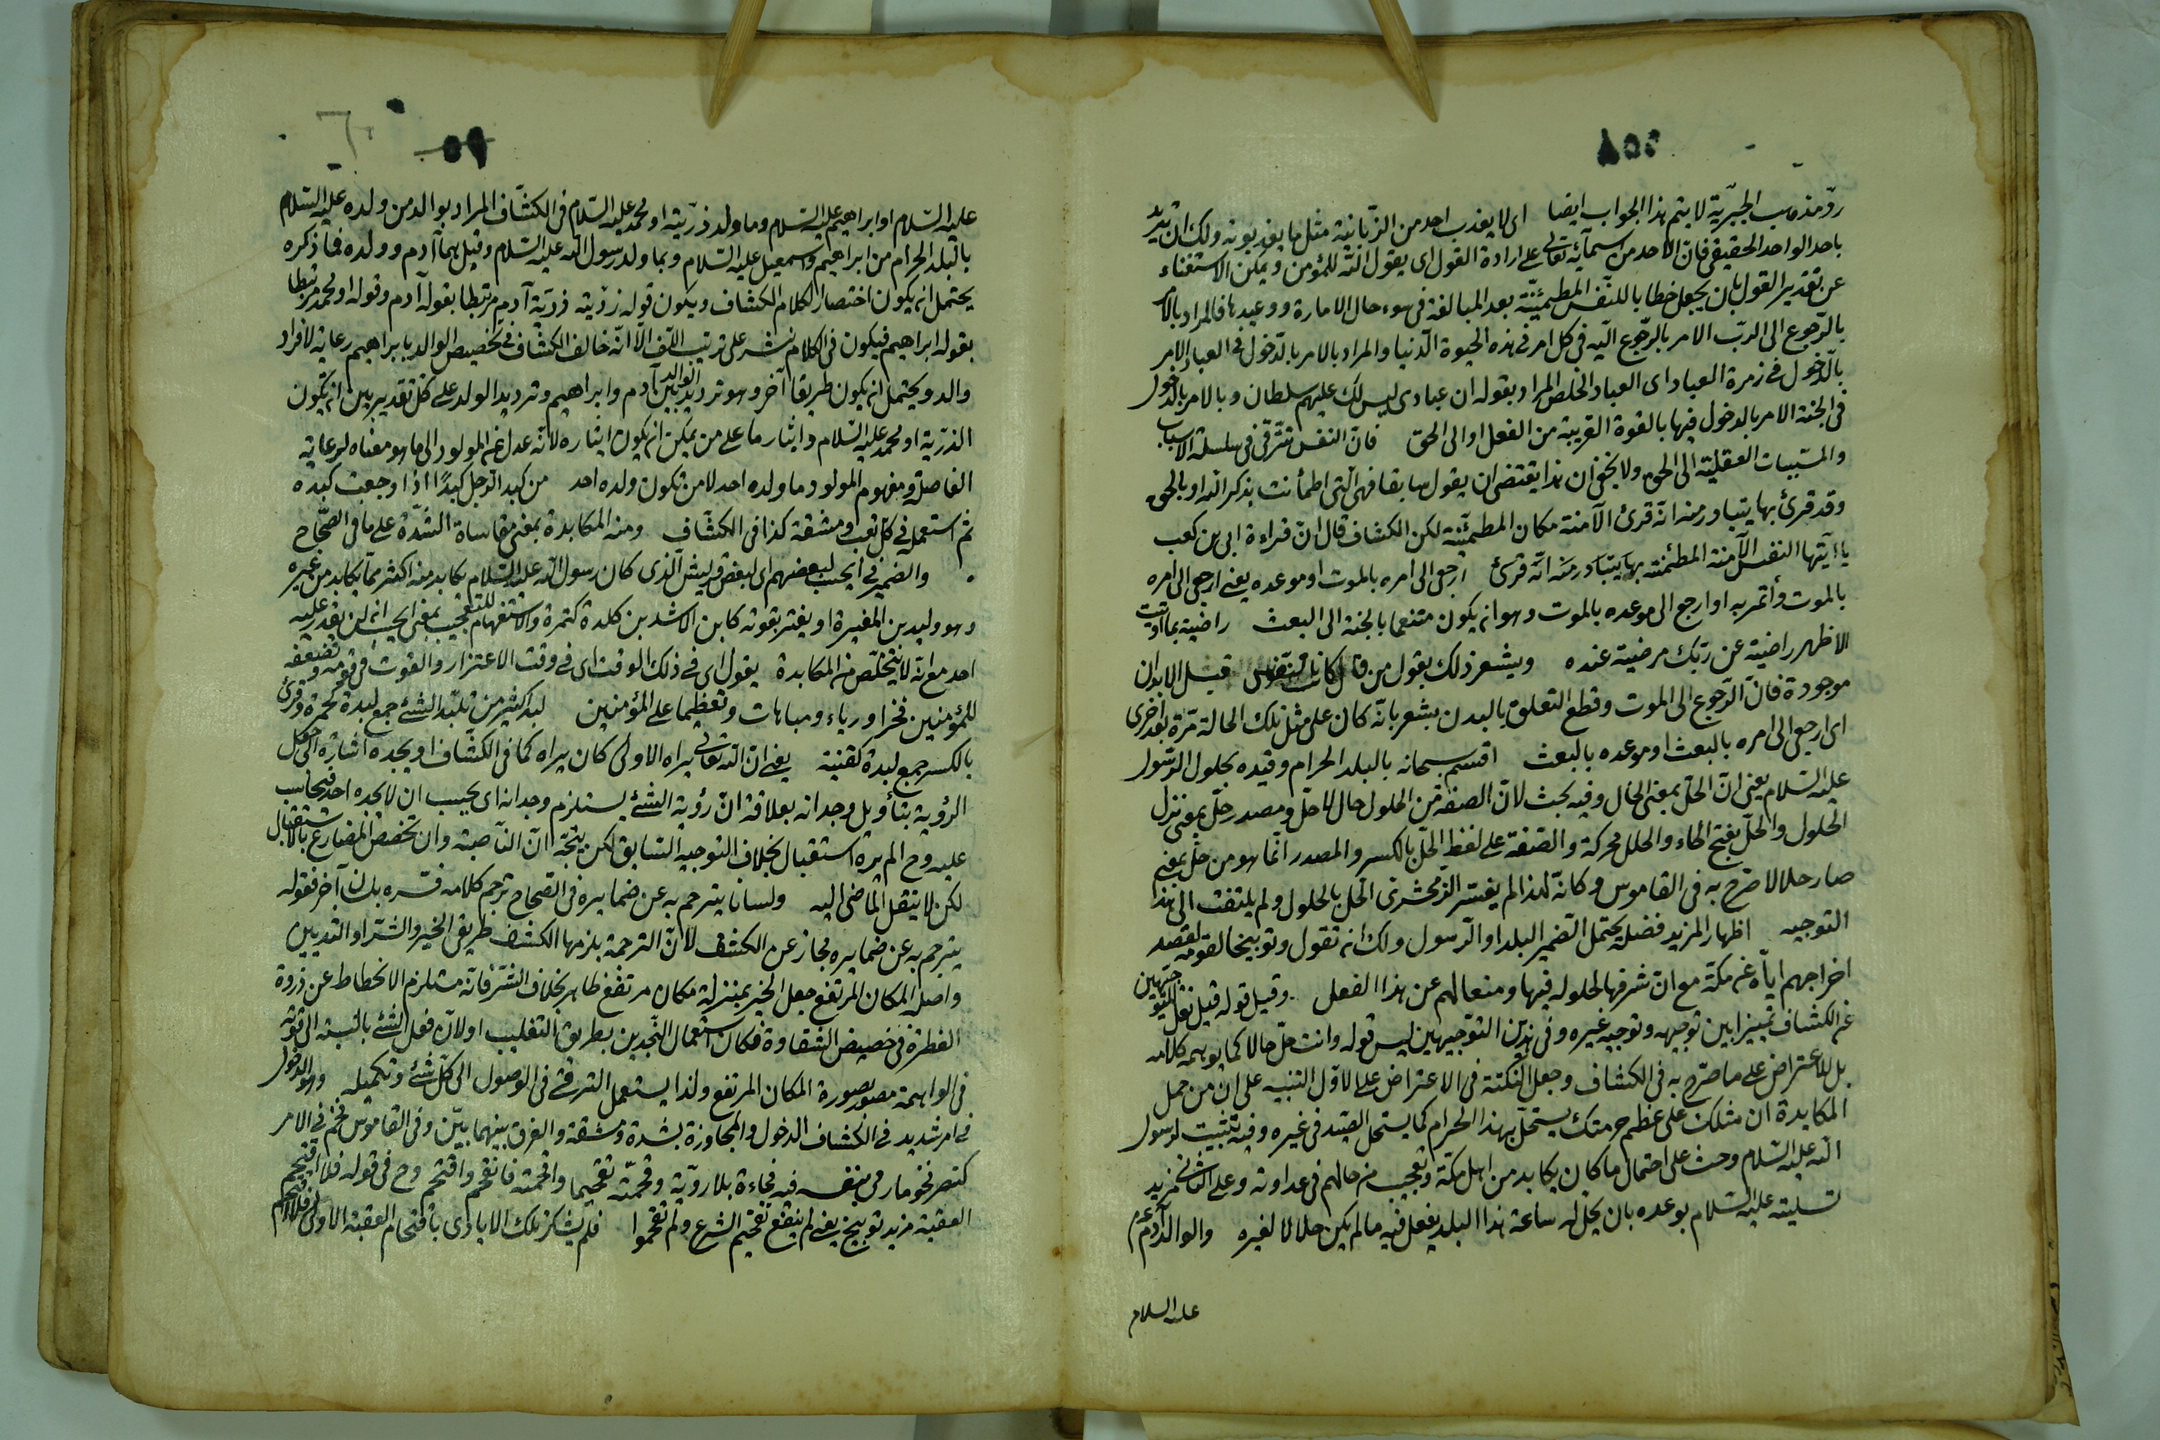 ردّ مذهب الجبريّة لا يتم هذا الجواب ايضا اى لا يعذب احد من الزّبانية مثل ما يعذبونه ولك ان تريد
باحد الواحد الحقيقى فانّ الاحد من اسمآئه تعالى على ارادة القول اى يقول اللّه للمؤمن ويمكن الاستغناء
عن تقدير القول بان يجعل خطابا للنّفس المطمئنّة بعد المبالغة فى سوء حال الامارة ووعيدها فالمراد بالامر
بالرّجوع الى الربّ الامر بالرّجوع اليه فى كل امر فى هذه الحيوة الدّنيا والمراد بالامر بالدّخول فى العباد الامر
بالدّخول فى زمرة العباد اى العباد الخلص المراد بقوله ان عبادى ليس لك عليهم سلطان وبالامر بالدخول
فى الجنة الامر بالدخول فيها بالقوة القريبة من الفعل او الى الحق فانّ النفس تترقى فى سلسلة الاسباب
والمسببات العقلية الى الحق ولا يخفى ان هذا يقتضى ان يقول سابقا فهى التى اطمأنت بذكر اللّه او بالحق
وقد قرئ بها يتبادر منه انّه قرئ الآمنة مكان المطمئنة لكن الكشاف قال انّ قراءة ابى بن كعب
يا ايّتها النفس الآمنة المطمئنة بها يتبادر منه انّه قرئ ارجعى الى امره بالموت او موعده يعنى ارجعى الى امره
بالموت وأتمر به او ارجع الى موعده بالموت وهو انه يكون متنعما بالجنة الى البعث راضية بما اوتيت
الاظهر راضية عن ربّك مرضية عنده ويشعر ذلك بقول من قال كانت النفوس قبل الابدان
موجودة فانّ الرّجوع الى الموت وقطع التعلق بالبدن يشعر بانّه كان على مثل تلك الحالة مرّة بعد اخرى
اى ارجعى الى امره بالبعث او موعده بالبعث اقسم سبحانه بالبلد الحرام وقيده بحلول الرّسول
عليه السّلام يعنى انّ الحلّ بمعنى الحال وفيه بحث لانّ الصفة من الحلول حال لا حلّ ومصدر حلّ بمعنى نزل
الحلول والحلّ بفتح الحاء والحلل محركة والصّفة على لفظ الحلّ بالكسر والمصدر انّما هو من حلّ بمعنى
صار حلالا صرّح به فى القاموس وكانّه لهذا لم يفسّر الزّمخشرى الحلّ بالحلول ولم يلتفت الى هذا
التوجيه اظهارا لمزيد فضله يحتمل الضمير البلد او الرّسول ولك انه تقول وتوبيخا لقومه لقصد
اخراجهم ايّاه عن مكّة مع انّ شرفها لحلوله فيها ومنعا لهم عن هذا الفعل وقيل قوله قيل نقل للتوجيهين
عن الكشاف تمييزا بين توجيهه وتوجيه غيره وفى هذين التوجيهين ليس قوله وانت حلّ حالا كما يوهمه كلامه
بل للاعتراض على ما صرّح به فى الكشاف وجعل النكتة فى الاعتراض على الاوّل التنبيه على ان من جمل
المكابدة ان مثلك على عظم حرمتك يستحلّ بهذا الحرام كما يستحل الصّيد فى غيره وفيه تثبيت لرسول
اللّه عليه السّلام وحث على احتمال ما كان يكابد من اهل مكّة وتعجيب من حالهم فى عداوته وعلى الثانى مزيد
تسليته عليه السّلام بوعده بان يحل له ساعة هذا البلد يفعل فيه ما لم يكن حلالا لغيره والوالد آدم
عليه السلام
عليه السّلام او ابراهيم عليه السّلام وما ولد ذرّيته او محمد عليه السّلام فى الكشّاف المراد بوالد من ولده عليه السّلام
بالبلد الحرام من ابراهيم واسمعيل عليه السّلام وبما ولد رسول اللّه عليه السّلام وقيل هما آدم وولده فما ذكره
يحتمل انه يكون اختصار الكلام الكشاف ويكون قوله ذرّيته ذرّيّة آدم مرتبطا بقوله آدم وقوله او محمد مرتبطا
بقوله ابراهيم فيكون فى الكلام نشر على ترتيب اللّف الّا انّه خالف الكشّاف فى تخصيص الوالد بابراهيم رعاية لافراد
والد ويحتمل انه يكون طريقا آخر وهو ترديد الوالد بين آدم وابراهيم وترديد الولد على كل تقدير بين انه يكون
الذرّية او محمد عليه السّلام وايثار ما على من يمكن انه يكون ايثاره لانّه عدل عن المولود الى ما هو معناه لرعاية
الفاصلة ومفهوم المولود ما ولده احد لا من تكون ولده احد من كبد الرّجل كبدا اذا وجعت كبده
ثم استعمل فى كلّ تعب ومشقة كذا فى الكشّاف ومنه المكابدة بمعنى مقاساة الشّدّة على ما فى الصّحاح
والضمير فى ايحسب لبعضهم اى لبعض قريش الّذى كان رسول اللّه عليه السّلام يكابد منه اكثر ممّا يكابد من غيره
وهو وليد بن المغيرة او يغتر بقوته كابن الاشد بن كلدة كتمرة والاستفهام للتعجيب بمعنى ايحسب انه لن يقدر عليه
احد مع انّه لا يتخلّص من المكابدة يقول اى فى ذلك الوقت اى فى وقت الاعتزار والقوت فى قومه وتضعفه
للمؤمنين فخرا ورياء ومباهات وتعظيما على المؤمنين لبدا كثير من تلبّد الشئ جمع لبدة كحمرة وقرئ
بالكسر جمع لبدة كقنية يعنى انّ اللّه تعالى يراه الاولى كان يراه كما فى الكشّاف او يجده اشارة الى حمل
الرؤية بتأويل وجدانه بعلاقة انّ رؤية الشئ يستلزم وجدانه اى يحسب ان لا يجده احد فيحاسب
عليه وح الم يره استقبال بخلاف التوجيه السّابق لكن يتّجه انّ النّاصبة وان تخصّص المضارع بالاستقبال
لكن لا تنقل الماضى اليه ولسانا يترجم به عن ضمايره فى الصحاح ترجم كلامه فسره بلسان آخر فقوله
يترجم به عن ضمايره مجاز عن الكشف لانّ الترجمة يلزمها الكشف طريقى الخير والشّر او الثديين
واصله المكان المرتفع جعل الخير بمنزلة مكان مرتفع ظاهر بخلاف الشّر فانّه مستلزم الانحطاط عن ذروة
الفطرة فى حضيض الشقاوة فكان استعمال النّجدين بطريق التغليب او لانّ فعل الشئ بالنسبة الى قوته
فى الواهمة مصور بصورة المكان المرتفع ولذا يستعمل الترقى فى الوصول الى كلّ شئ وتكميله وهو الدخول
فى امر شديد فى الكشاف الدخول والمجاوزة بشدة ومشقة والفرق بينهما بيّن وفى القاموس قحم فى الامر
كنصر قحوما رمى بنفسه فيه فجاءة بلا رويّة وقحمّته تقحيما واقحمته فانقحم واقتحم وح فى قوله فلا اقتحم
العقبة مزيد توبيخ يعنى لم ينفع تقحيم الشرع ولم تقحموا فلم يشكر تلك الايادى باقتحام العقبة الاولى